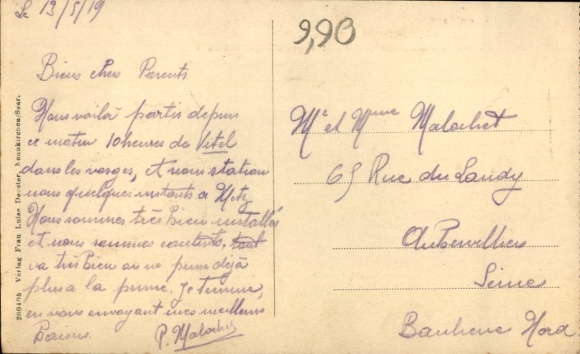 Le 13/5/19
9,90
Biens chers Parents
Nous voilà partis depuis
ce matin 10 heures de Vitel
dans les vosges, et nous station
nous quelques instants a Metz
Nous sommes très Bien installés
et nous sommes contents, tout
va très Bien on ne pense déjà
plus a la . Je termine,
en vous envoyant mes meilleurs
Baisers. P. Malochet
Mr et Mme Malochet
65 Rue du Landy
Aubervilliers
Seine
Banlieue Nord
200408 Verlag Frau Luise Deester, Neunkirchen/Saar.